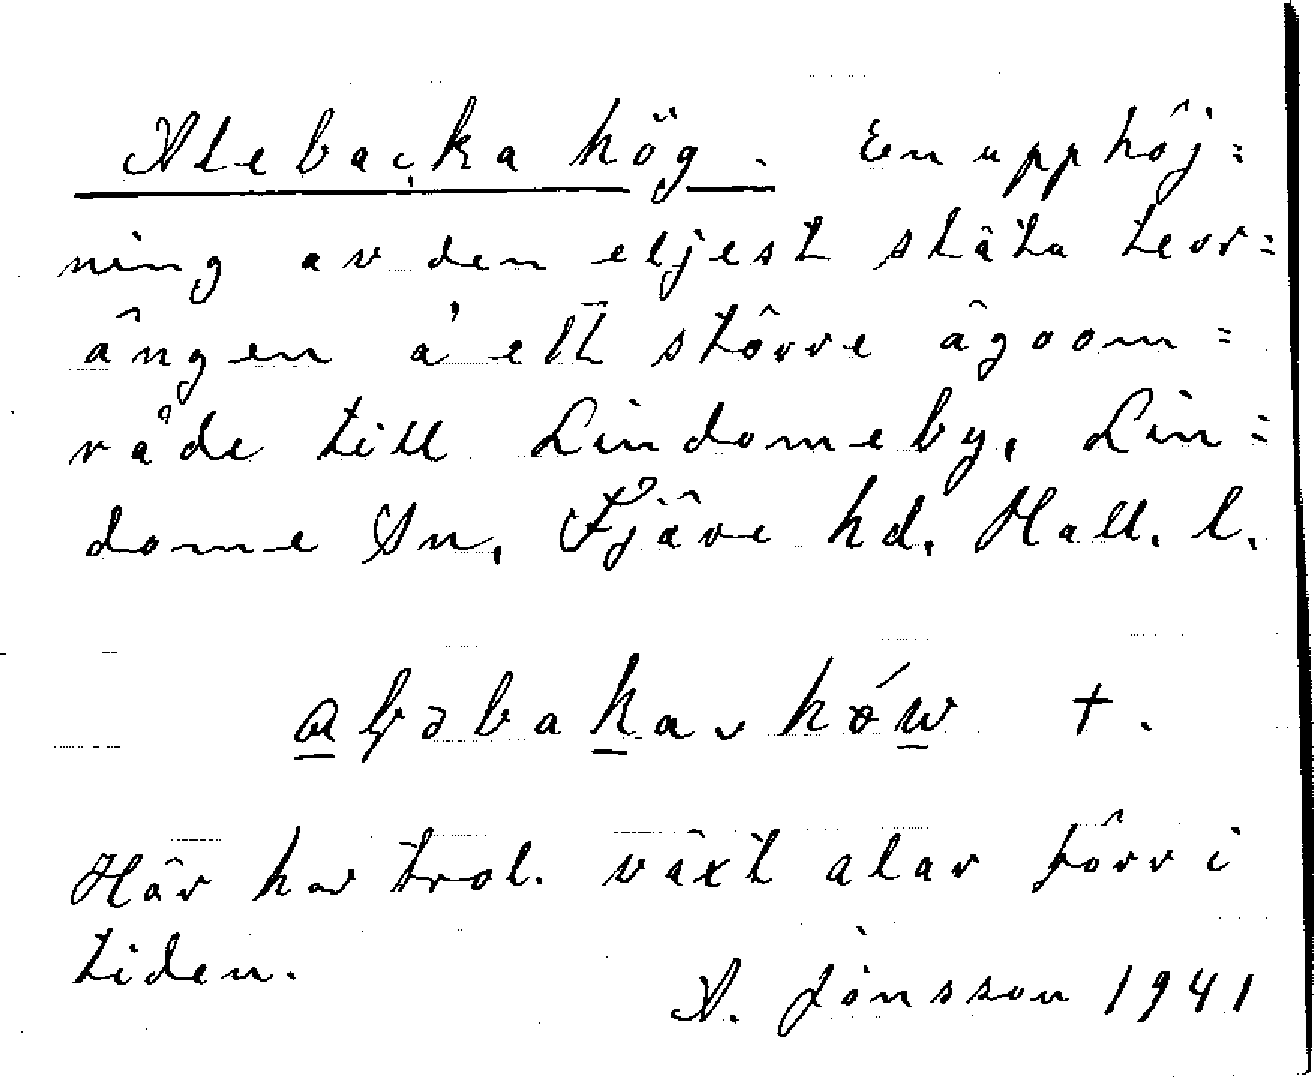 Alebacka hög. En upphöj=
ning av den eljest släta terr=
ängen å ett större ägoom=
råde till Lindomeby, Lin=
dome Sn, Fjäre hd. Hall. l.
här har trol. växt alar förr i
tiden.
A. Jönsson 1941